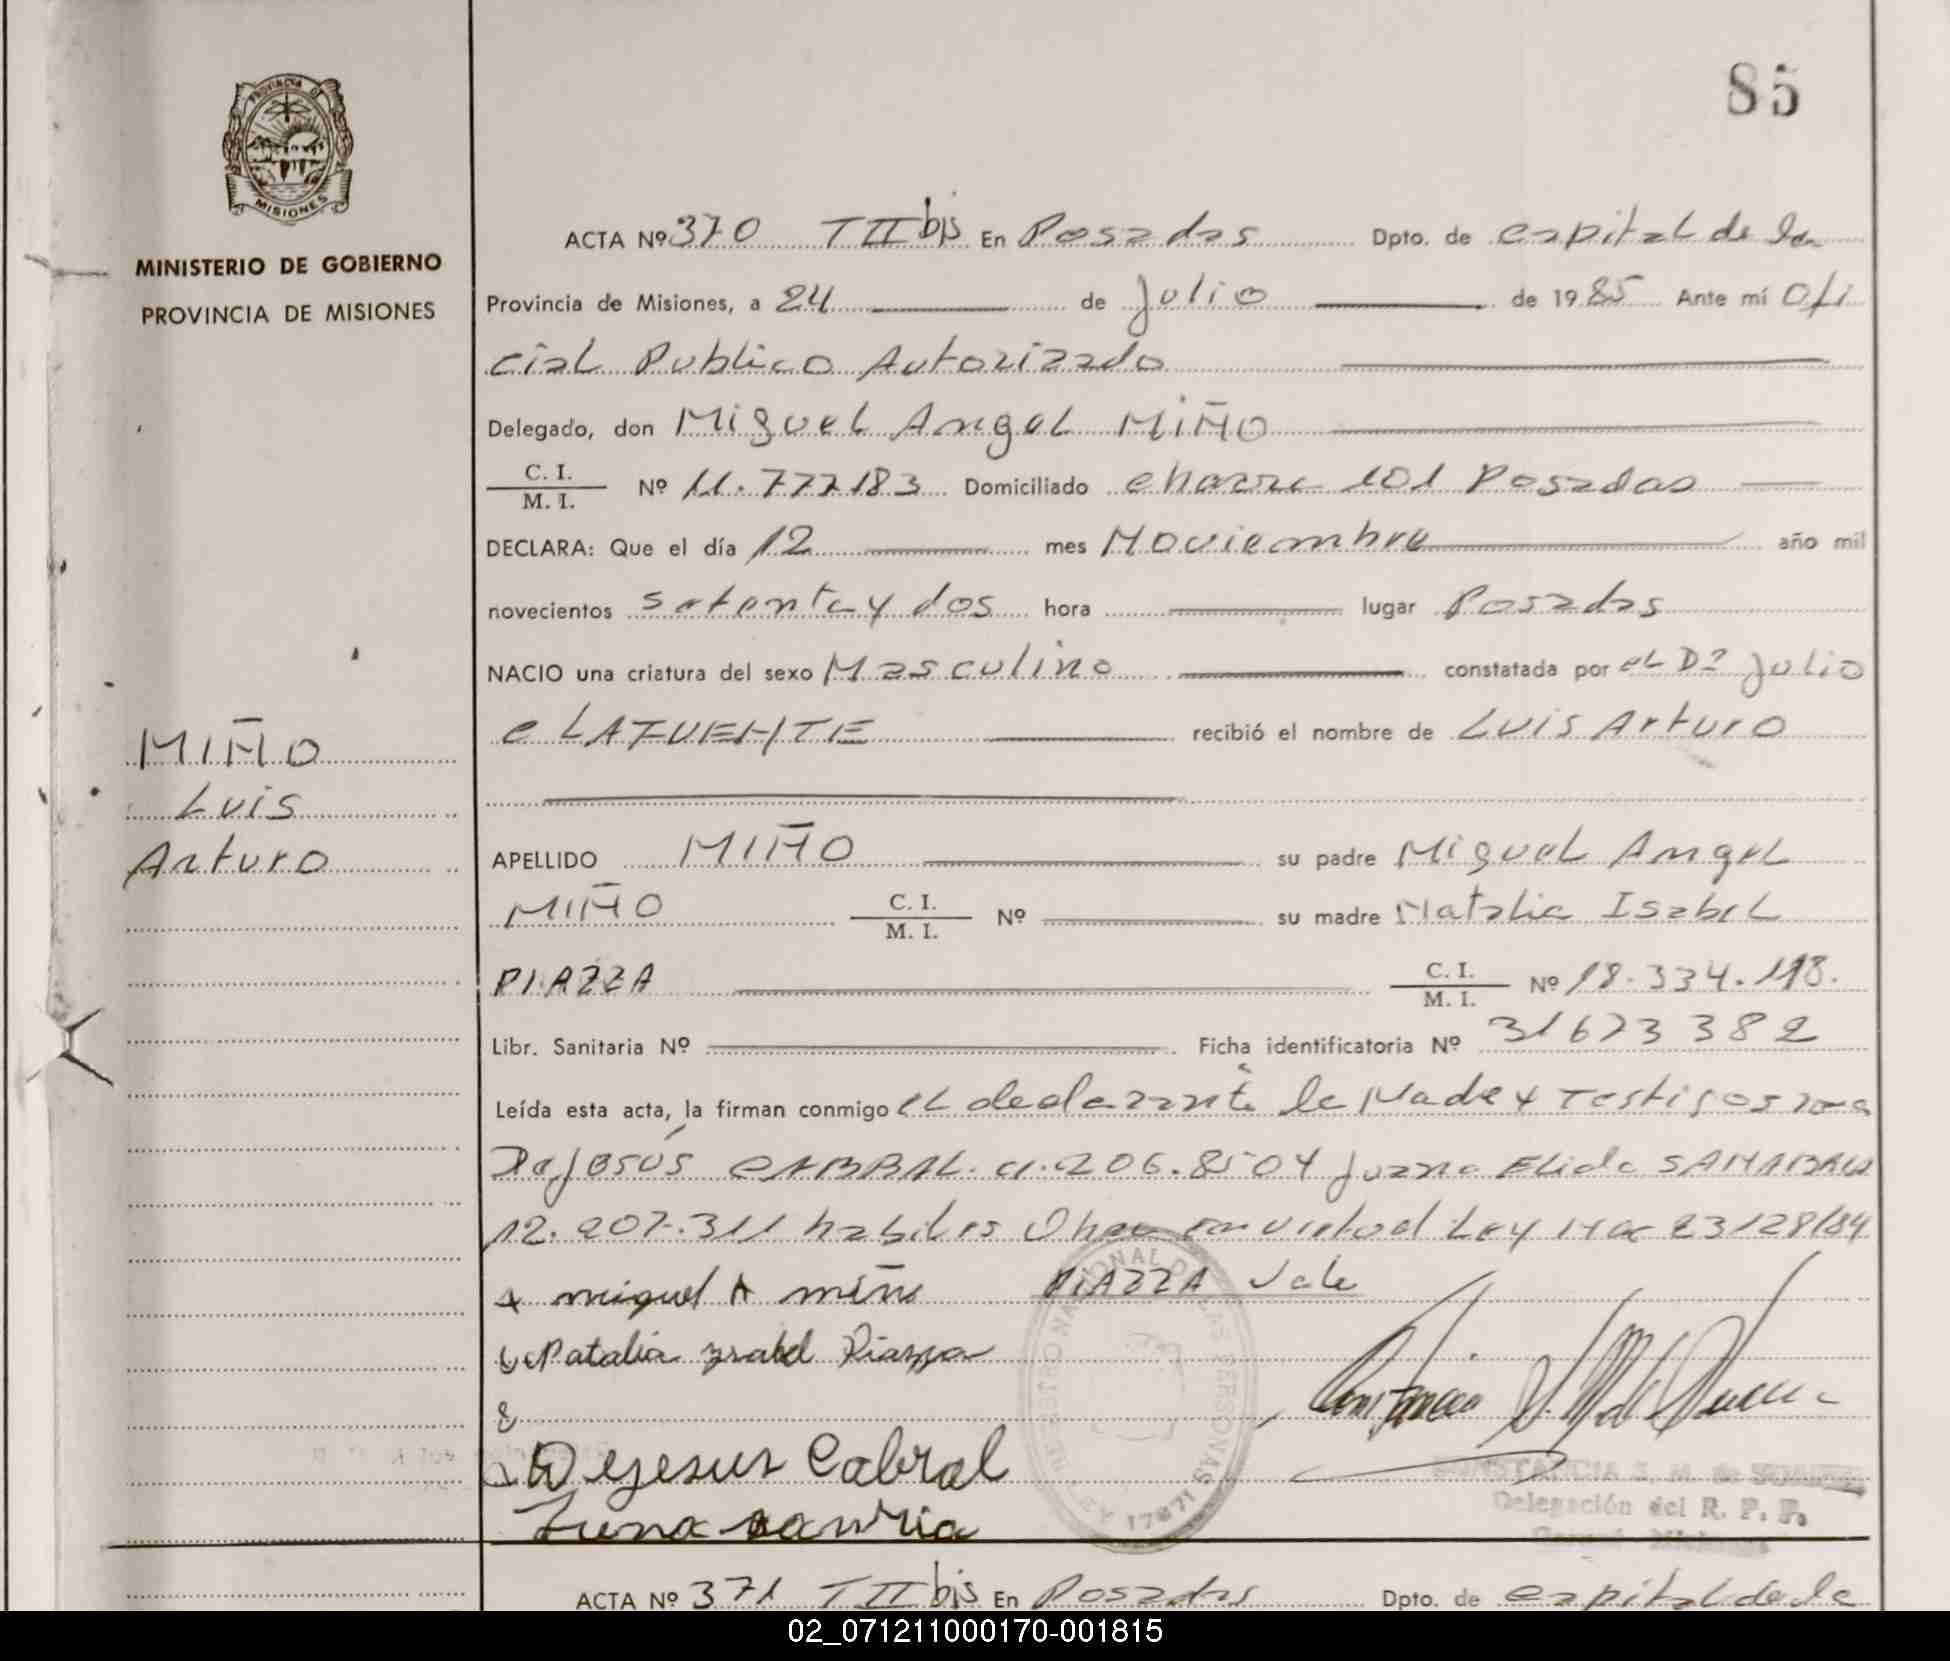 85
PROVINCIA DE
MISIONES
MINISTERIO DE GOBIERNO
PROVINCIA DE MISIONES
ACTA Nº 370 T II bis En Posadas Dpto. de capital de la
Provincia de Misiones, a 24 de julio de 1985 Ante mí Ofi
cial Publico Autorizado
Delegado, don Miguel Angel MIÑO
C. I.
M. I. Nº 11.777.183 Domiciliado chacra 101 Posadas
DECLARA: Que el día 12 mes Noviembre año mil
novecientos setenta y dos hora lugar Posadas
NACIO una criatura del sexo Masculino constatada por el Dº julio
e LAFUENTE recibió el nombre de Luis Arturo
MIÑO
Luis
Arturo
APELLIDO MIÑO su padre Miguel Angel
MIÑO C. I. M. I. Nº su madre Natalia Isabel
PIAZZA C. I. M. I. Nº 18.334.118.
Libr. Sanitaria Nº Ficha identificatoria Nº 31673382
Leída esta acta, la firman conmigo el declarante la Madre y Testigos
De Jesús CABRAL 206.8504 juana Elida
12.207.311 habiles en virtud Ley 23128/84
miguel A miño PIAZZA Vale
Natalia ysabel Piazza
Dejesus Cabral
Delegación del R. P. P.
ACTA Nº 371 T II bis En Posadas Dpto. de capital de la
02_071211000170-001815